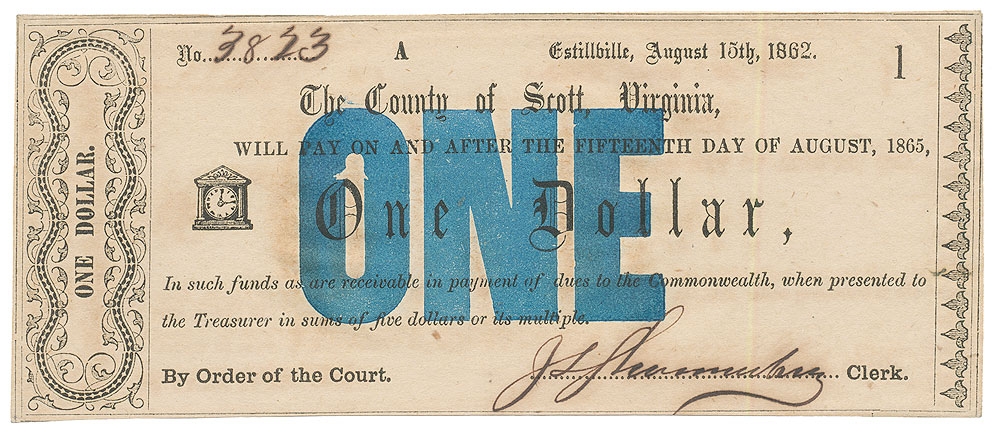 No. 3823 A Estillville, August 15th, 1862. 1
The County of Scott, Virginia,
WILL PAY ON AND AFTER THE FIFTEENTH DAY OF AUGUST, 1865,
One Dollar,
ONE
In such funds as are receivable in payment of dues to the Commonwealth, when presented to
the Treasurer in sums of five dollars or its multiple.
By Order of the Court. Clerk.
ONE DOLLAR.